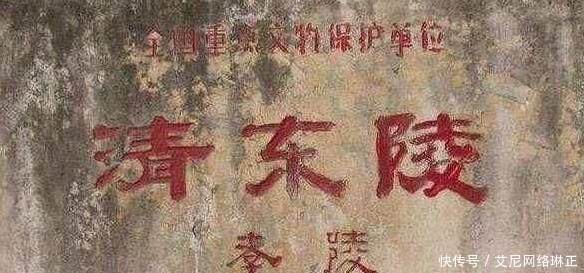 全国重点文物保护单位
清东陵
孝陵
快传号 / 艾尼网络琳正